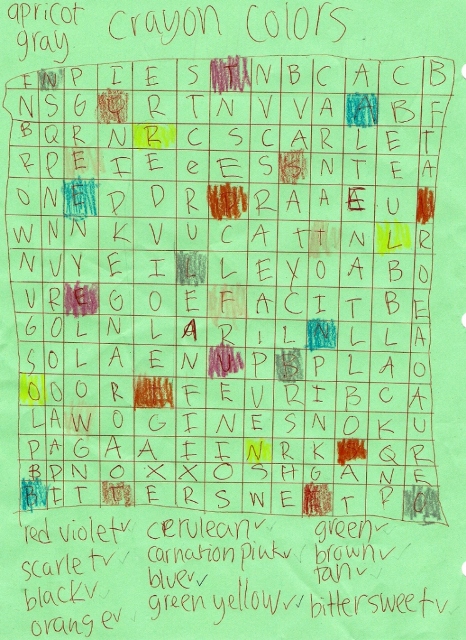 apricot
gray
Crayon Colors
E N P I E S T N B C A C B
N S G Q R T N V V A A B F
B Q R N R C S C A R L E T
R P E I E e E S S N T E A
O N E P D R D R A A E U
W N N K V U C A T T N L R
N U Y E I L L E Y O A B O
U R E G O E F A C I T B E
G O L N L A R I L N L L A
S O L A E N U P B P L A O
O O O R F E V R I B C A
L A W O G I N E S N O K U
P A G A A I I N R K Q R
B P N O X X O S H G A N E
B I T T E R S W E E T P C
red violet✓ cerulean✓ green✓
scarlet✓ carnation pink✓ brown✓
black✓ blue✓ tan✓
orange✓ green yellow✓ bittersweet✓